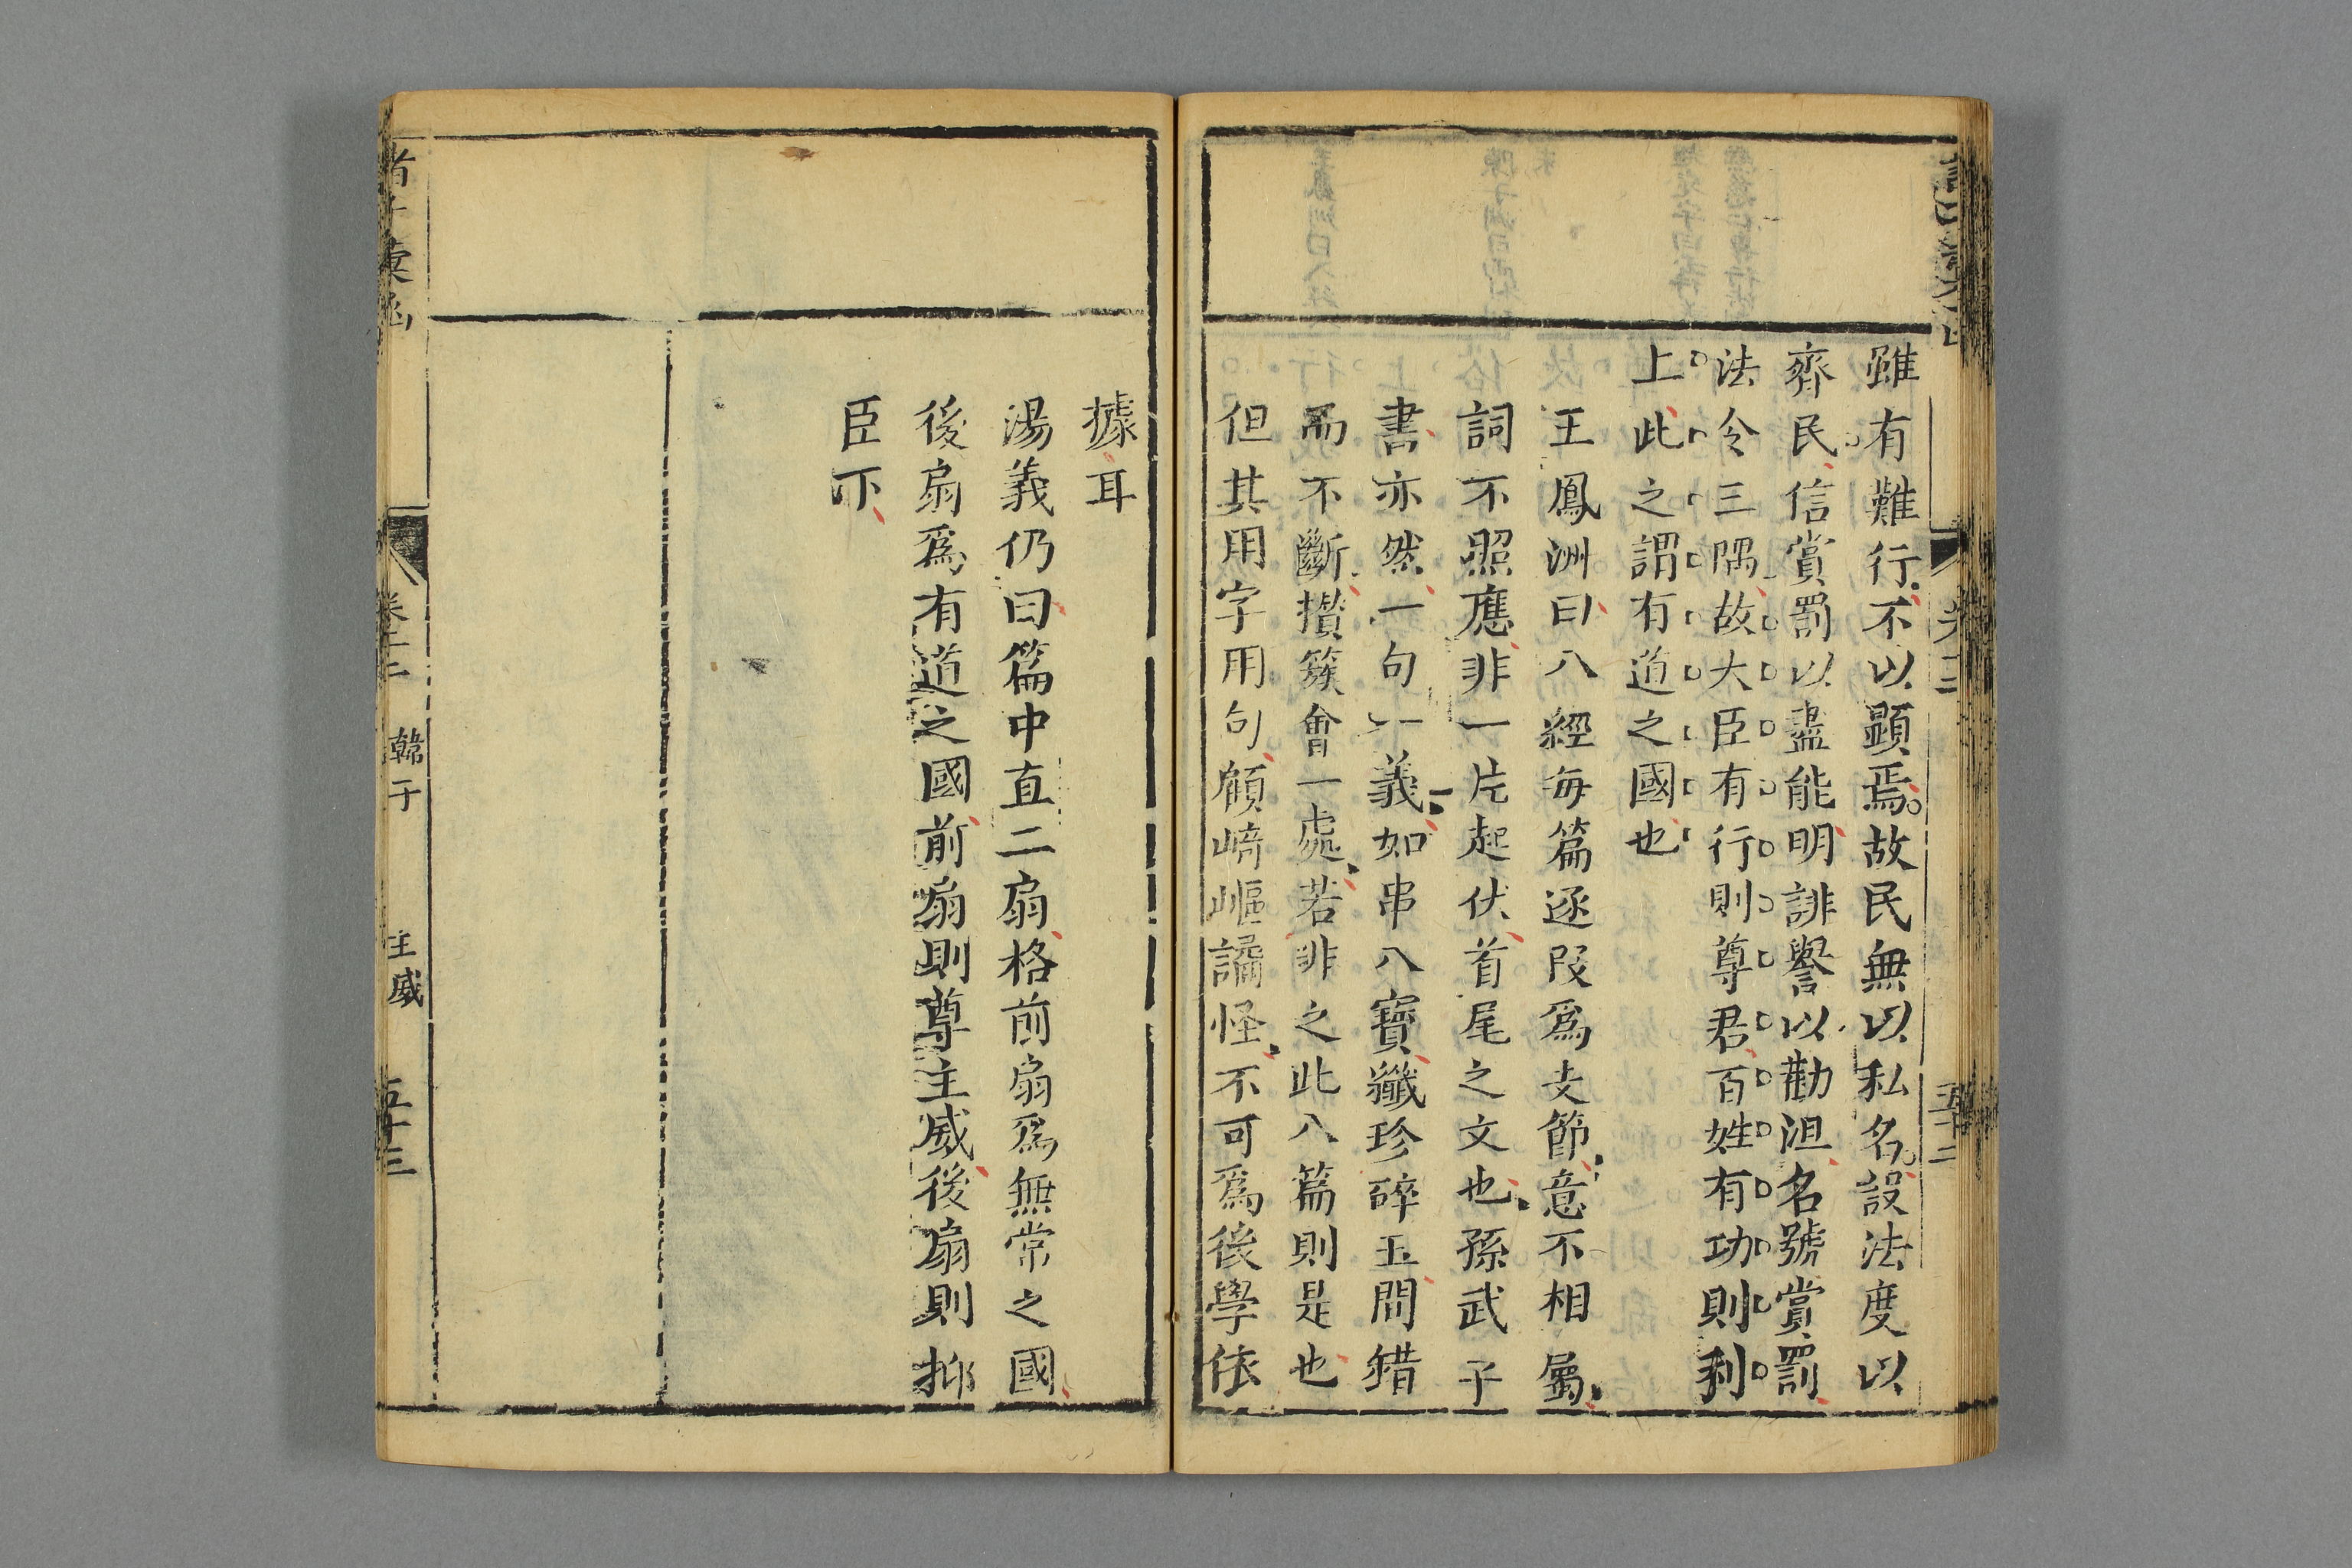 雖有難行不以顯焉故民無以私名設法度以
齊民信賞罰以盡能明誹譽以勸沮名號賞罰
法令三隅故大臣有行則尊君百姓有功則利
上此之謂有道之國也
王鳳洲曰八經每篇逐段爲支節意不相屬
詞不照應非一片起伏首尾之文也孫武子
書亦然一句一義如串八寶孅珍碎玉間錯
而不斷攢簇會一處若非之此八篇則是也
但其用字用句頗崎嶇譎怪不可爲後學依
據耳
湯義仍曰篇中直二扇格前扇爲無常之國
後扇爲有道之國前扇則尊主威後扇則抑
臣下
韓子
主威
五十三